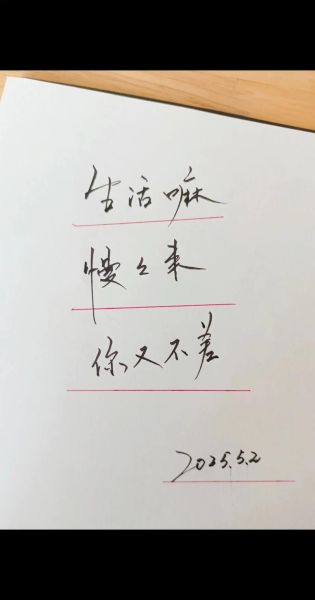 生活嘛
慢々来
你又不差
2025.5.2